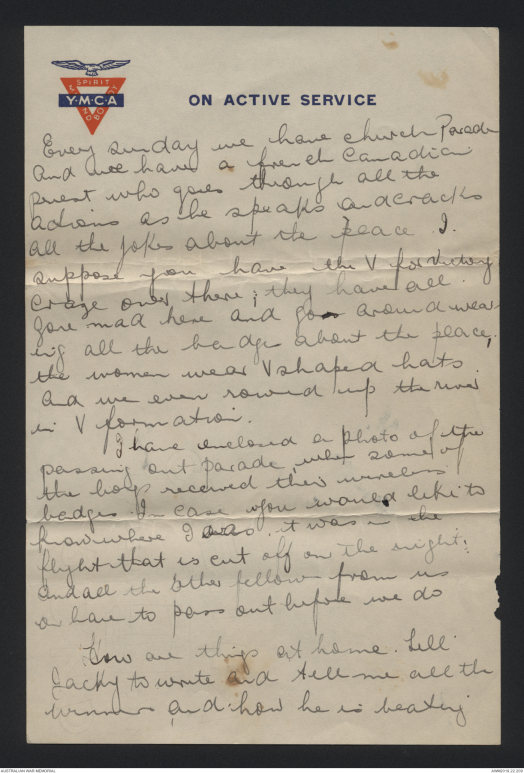 SPIRIT
Y·M·C·A
MIND
BODY
ON ACTIVE SERVICE
Every sunday we have church Parade
and we have a french Canadian
priest who goes through all the
actions as he speaks and cracks
all the jokes about the peace I.
suppose you have the V for Victory
craze over there; they have all
gone mad here and go around wear
ing all the badges about the place,
the women wear V shaped hats
and we even rowed up the river
in V formation.
I have enclosed a photo of the
passing out parade, when some of
the boys received their wireless
badges In case you would like to
know where I was. it was in the
flight that is cut off on the right:
and all the other fellows from us
or have to pass out before we do
How are things at home. Tell
Jacky to write and tell me all the
winners and how he is beating
AUSTRALIAN WAR MEMORIAL